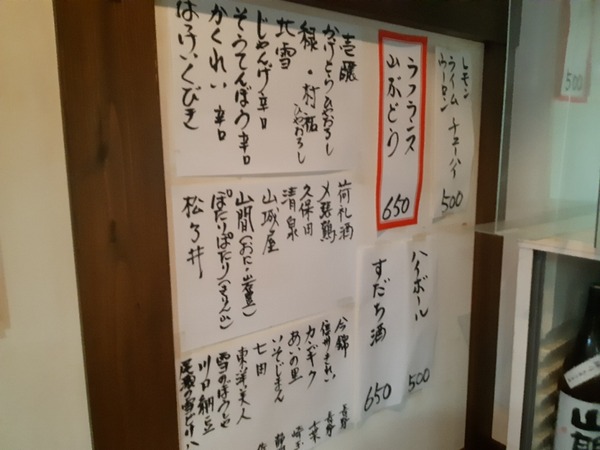 レモン
ライム チューハイ
ウーロン
500
ラフランス
山ぶどう
650
ハイボール
500
すだち酒
650
壱醸
かげとらひやおろし
緑・村祐
ひやおろし
北雪
じゃんげ辛口
そってんぼう辛口
かくれい 辛口
はっけいくびき
荷札酒
〆張鶴
久保田
清泉
山城屋
山間
ぽたりぽたり(きりん山)
松乃井
今錦 長野
信州きれい 長野
カンギク 千葉
あいの里
いそじまん
七田
東洋美人
雪のぼうしゃ
川口納豆
500